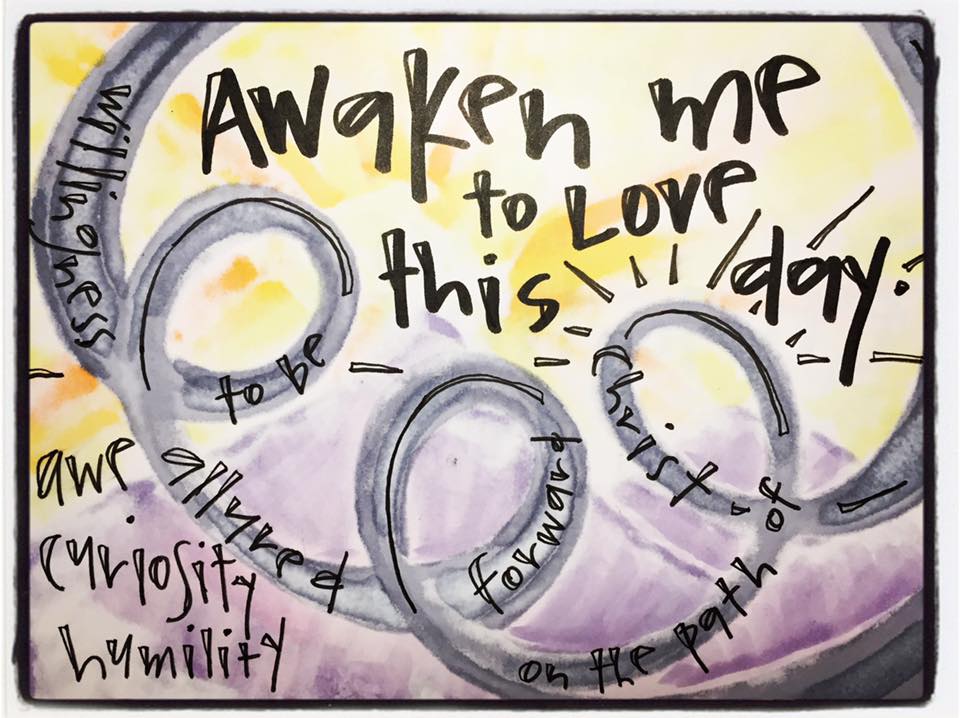 Awaken me
to Love
this day.
willingness
to be
allured
forward
on the path of
Christ
awe
curiosity
humility